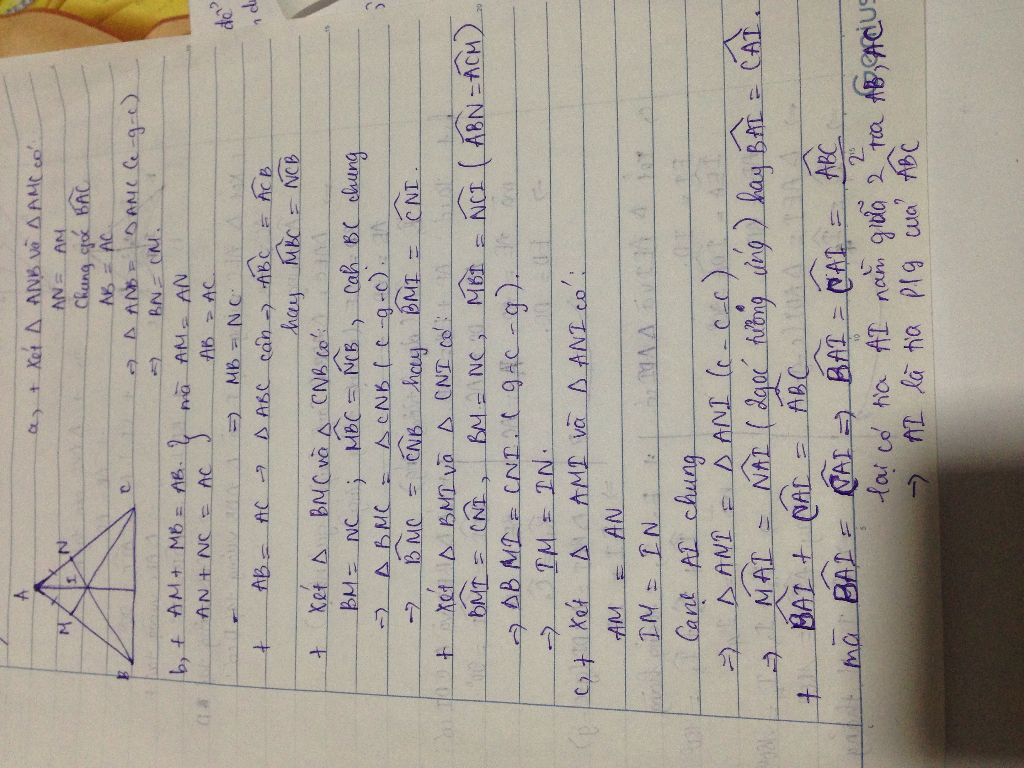 a, + Xét Δ ANB và Δ AMC có:
AN = AM
Chung góc BAC
AB = AC
⇒ Δ ANB = Δ AMC (c-g-c)
⇒ BN = CM.
A
M
N
I
B
C
b, + AM + MB = AB. } mà AM = AN
AN + NC = AC } AB = AC
⇒ MB = NC.
+ AB = AC → Δ ABC cân → ABC = ACB
hay MBC = NCB
+ Xét Δ BMC và Δ CNB có:
BM = NC ; MBC = NCB, cạh BC chung
⇒ Δ BMC = Δ CNB (c-g-c)
⇒ BMC = CNB hay BMI = CNI.
+ Xét Δ BMI và Δ CNI có:
BMI = CNI, BM = NC, MBI = NCI (ABN = ACM)
⇒ ΔBMI = CNI (g-c-g).
→ IM = IN.
c, + Xét Δ AMI và Δ ANI có:
AM = AN
IM = IN
Cạnh AI chung
⇒ Δ AMI = Δ ANI (c-c-c)
⇒ MAI = NAI (2góc tương ứng) hay BAI = CAI.
+ BAI + CAI = ABC
mà BAI = NAI ⇒ BAI = CAI = ABC
2
lại có tia AI nằm giữa 2 tia AB, AC
→ AI là tia p/g củả ABC